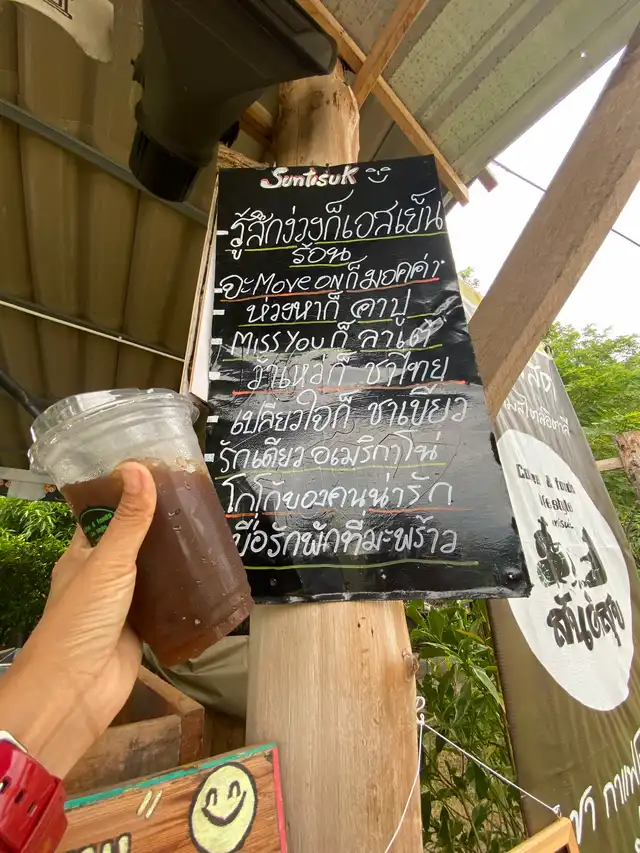 Suntisuk
รู้สึกง่วงก็เอสเย็น
ร้อน
จะMove ONก็มอคค่า
ห่วงหาก็ คาปู
MISS You ก็ ลาเต้
ว้าเหว่ก็ ชาไทย
เปลี่ยวใจก็ ชาเขียว
รักเดียว อเมริกาโน่
โกโก้ของคนน่ารัก
เบื่อรถพักที่มะพร้าว
& foods
life style
สันติสุข
ชา กาแฟ